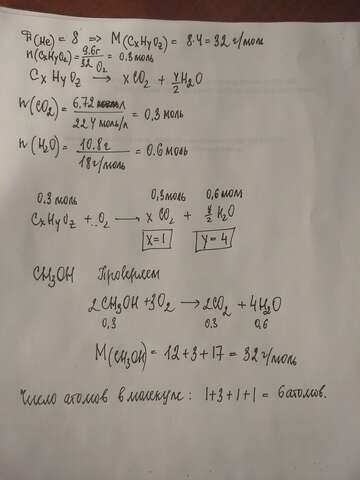 Д(He) = 8 => M(CxHyOz) = 8·4 = 32 г/моль
n(CxHyOz) = 9.6г/32 = 0.3 моль
CxHyOz →O2 xCO2 + y/2 H2O
n(CO2) = 6,72 л/22.4 моль/л = 0,3 моль
n(H2O) = 10.8г/18г/моль = 0.6 моль
0.3 моль 0,3 моль 0,6 моль
CxHyOz + ..O2 → xCO2 + y/2 H2O
x=1 y=4
CH3OH Проверяем
2CH3OH + 3O2 → 2CO2 + 4H2O
0,3 0.3 0.6
M(CH3OH) = 12+3+17 = 32 г/моль
Число атомов в молекуле: 1+3+1+1 = 6 атомов.